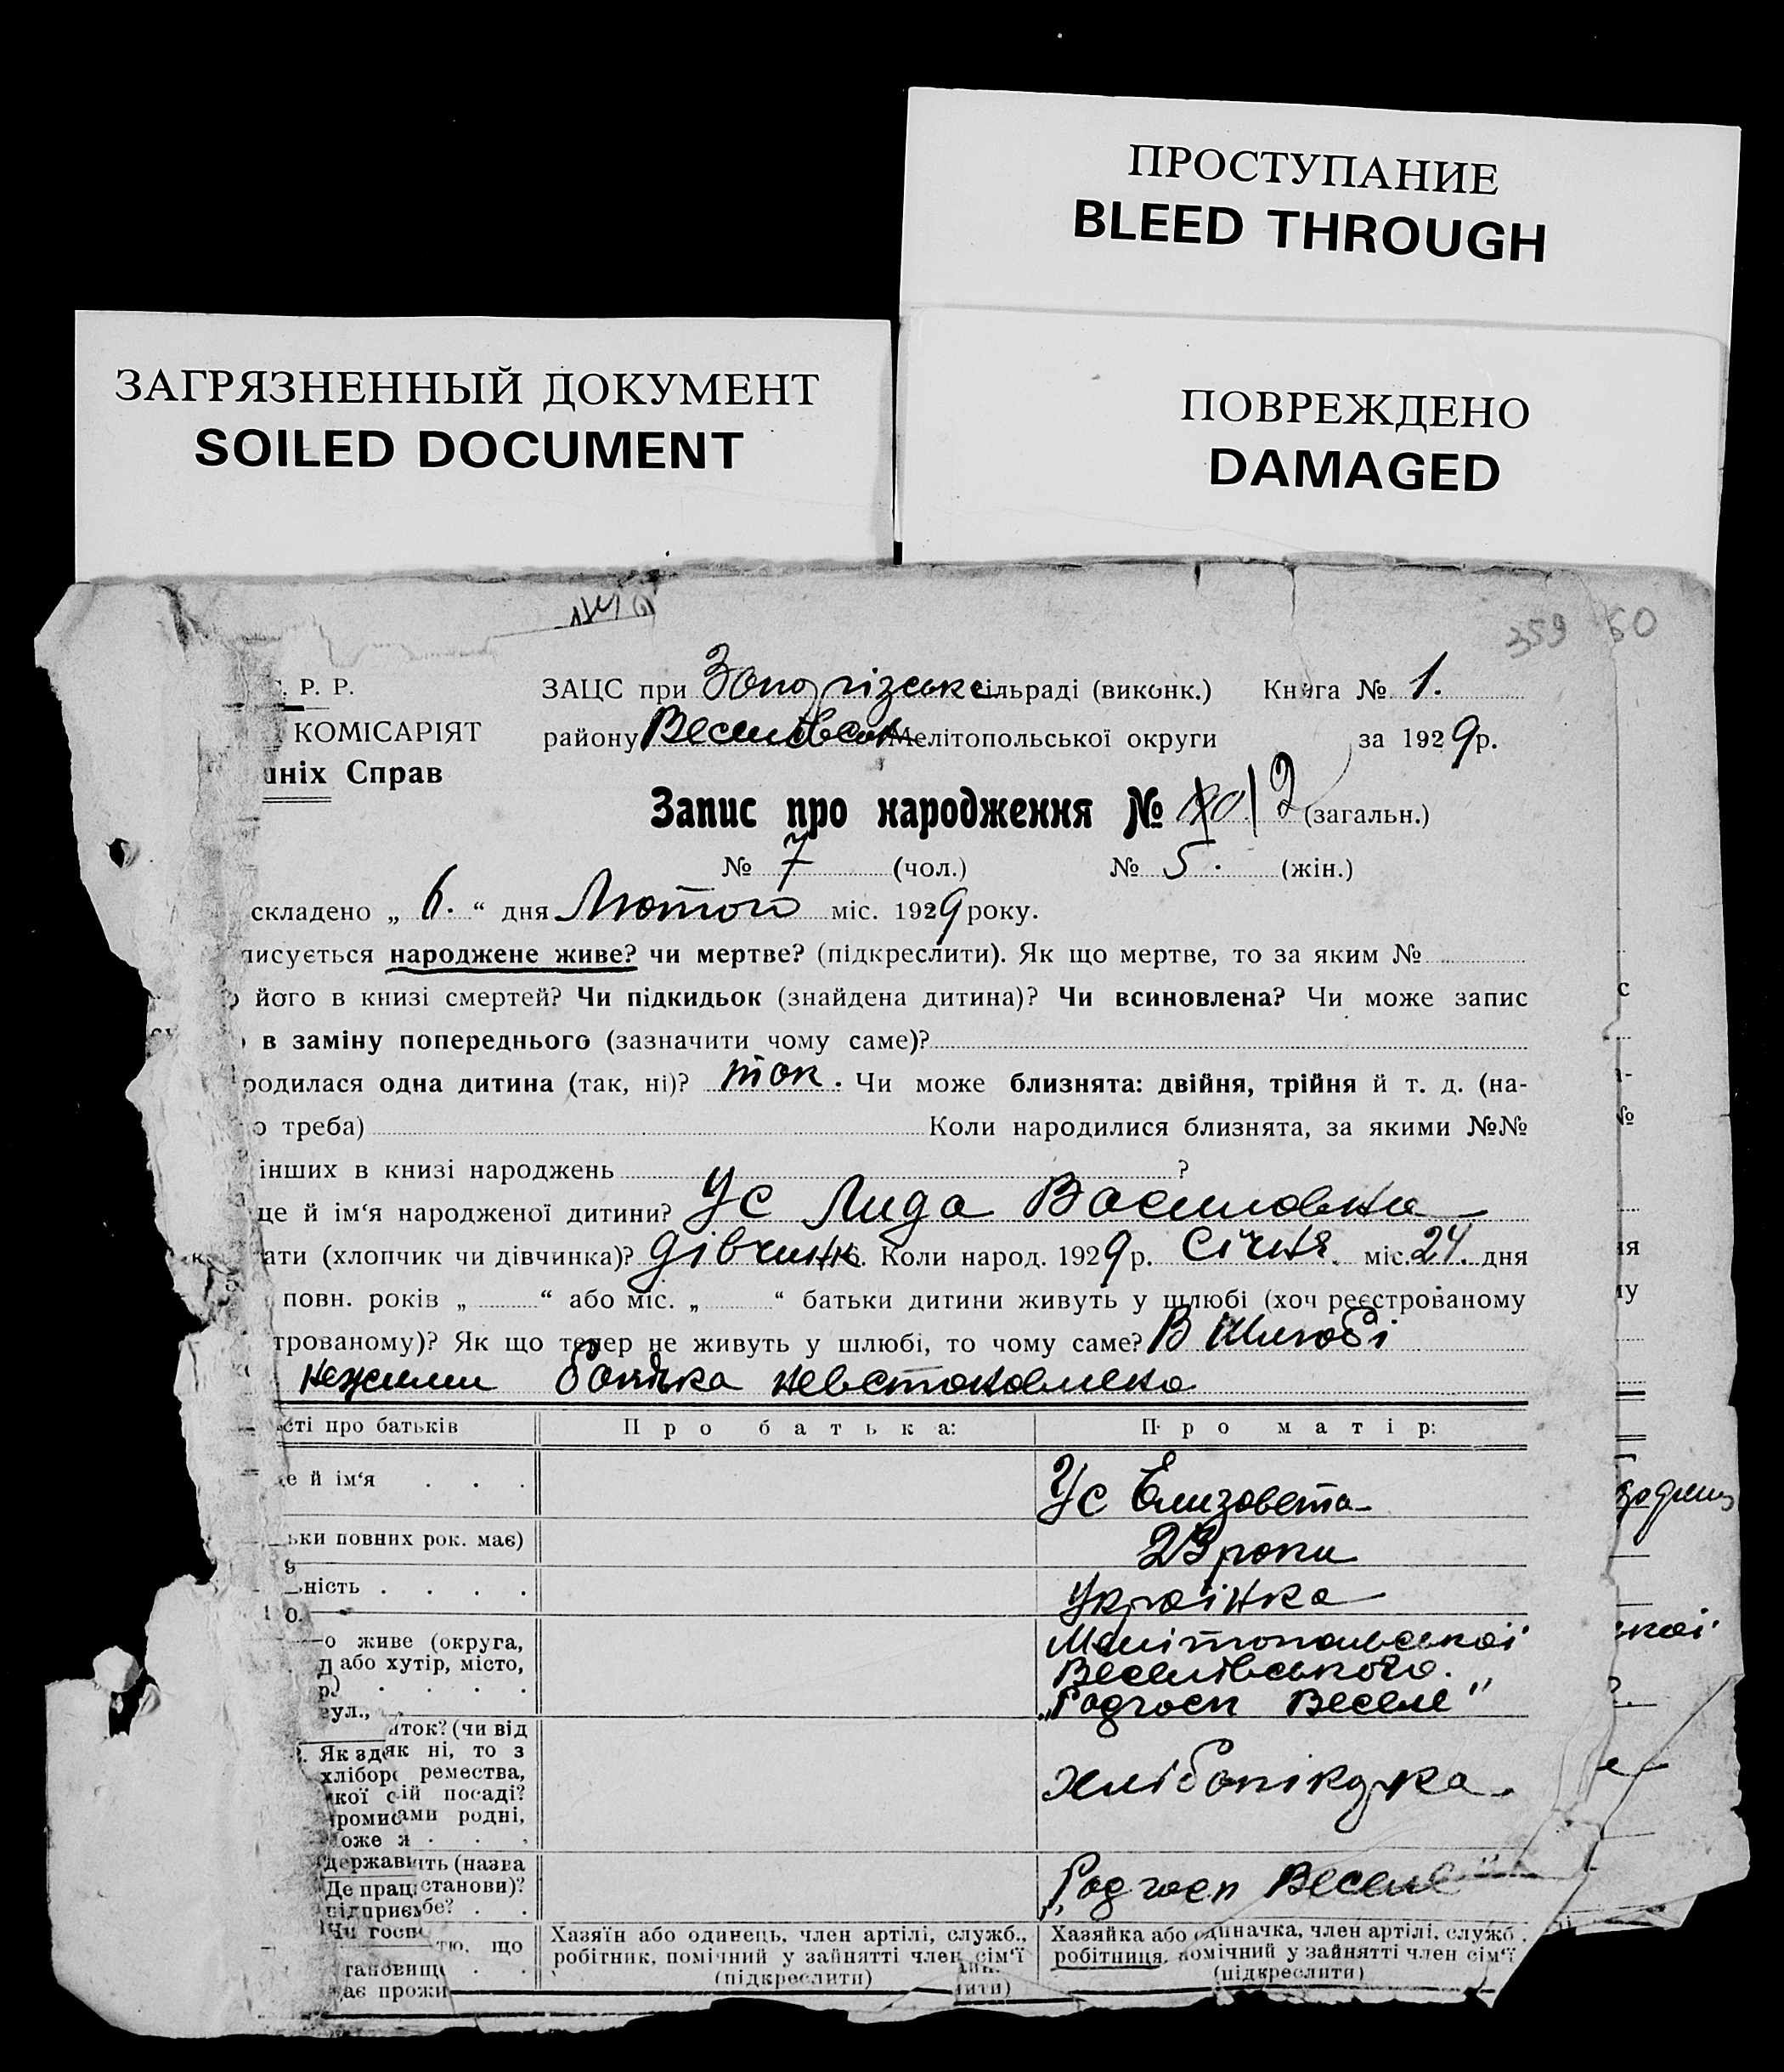 ПРОСТУПАНИЕ
BLEED THROUGH
ЗАГРЯЗНЕННЫЙ ДОКУМЕНТ
SOILED DOCUMENT
ПОВРЕЖДЕНО
DAMAGED
359 60
Р. Р.
КОМІСАРІЯТ
Справ
ЗАЦС при сільраді (виконк.) Книга № 1.
району Веселівськ Мелітопольської округи за 1929р.
Запис про народження № 12 (загальн.)
№ 7 (чол.) № 5. (жін.)
складено „ 6. “ дня Лютого міс. 1929 року.
народжене живе? чи мертве? (підкреслити). Як що мертве, то за яким №
його в книзі смертей? Чи підкидьок (знайдена дитина)? Чи всиновлена? Чи може запис
в заміну попереднього (зазначити чому саме)?
родилася одна дитина (так, ні)? так. Чи може близнята: двійня, трійня й т. д. (на-
треба) Коли народилися близнята, за якими №№
інших в книзі народжень ?
це й ім‘я народженої дитини? Ус Лида Василовна
ати (хлопчик чи дівчинка)? дівчинк 6. Коли народ. 1929 р. Січня. міс. 24. дня
повн. років „ “ або міс. „ “ батьки дитини живуть у шлюбі (хоч реєстрованому
трованому)? Як що тепер не живуть у шлюбі, то чому саме? В шлюбі
нежили батька невстановлено
сті про батьків Про батька: Про матір:
й ім‘я . . . Ус Елизовета
ьки повних рок. має) 23 роки
ність . . . . Українка
живе (округа, Мелітопольської
або хутір, місто, Веселівського.
вул., „Радгосп Веселе"
аток? (чи від
як ні, то з
ремества,
посаді?
родні,
хлібопікарка.
(назва
станови)?
„Радгосп Веселе"
Хазяїн або одинець, член артілі, служб.,
робітник, помічний у зайнятті член сім‘ї
(підкреслити)
Хазяйка або одиначка, член артілі, служб.
робітниця, помічний у зайнятті член сім‘ї
(підкреслити)